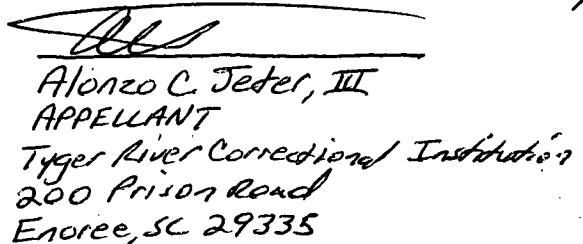 Alonzo C. Jeter, III
APPELLANT
Tyger River Correctional Institution
200 Prison Road
Enoree, SC 29335